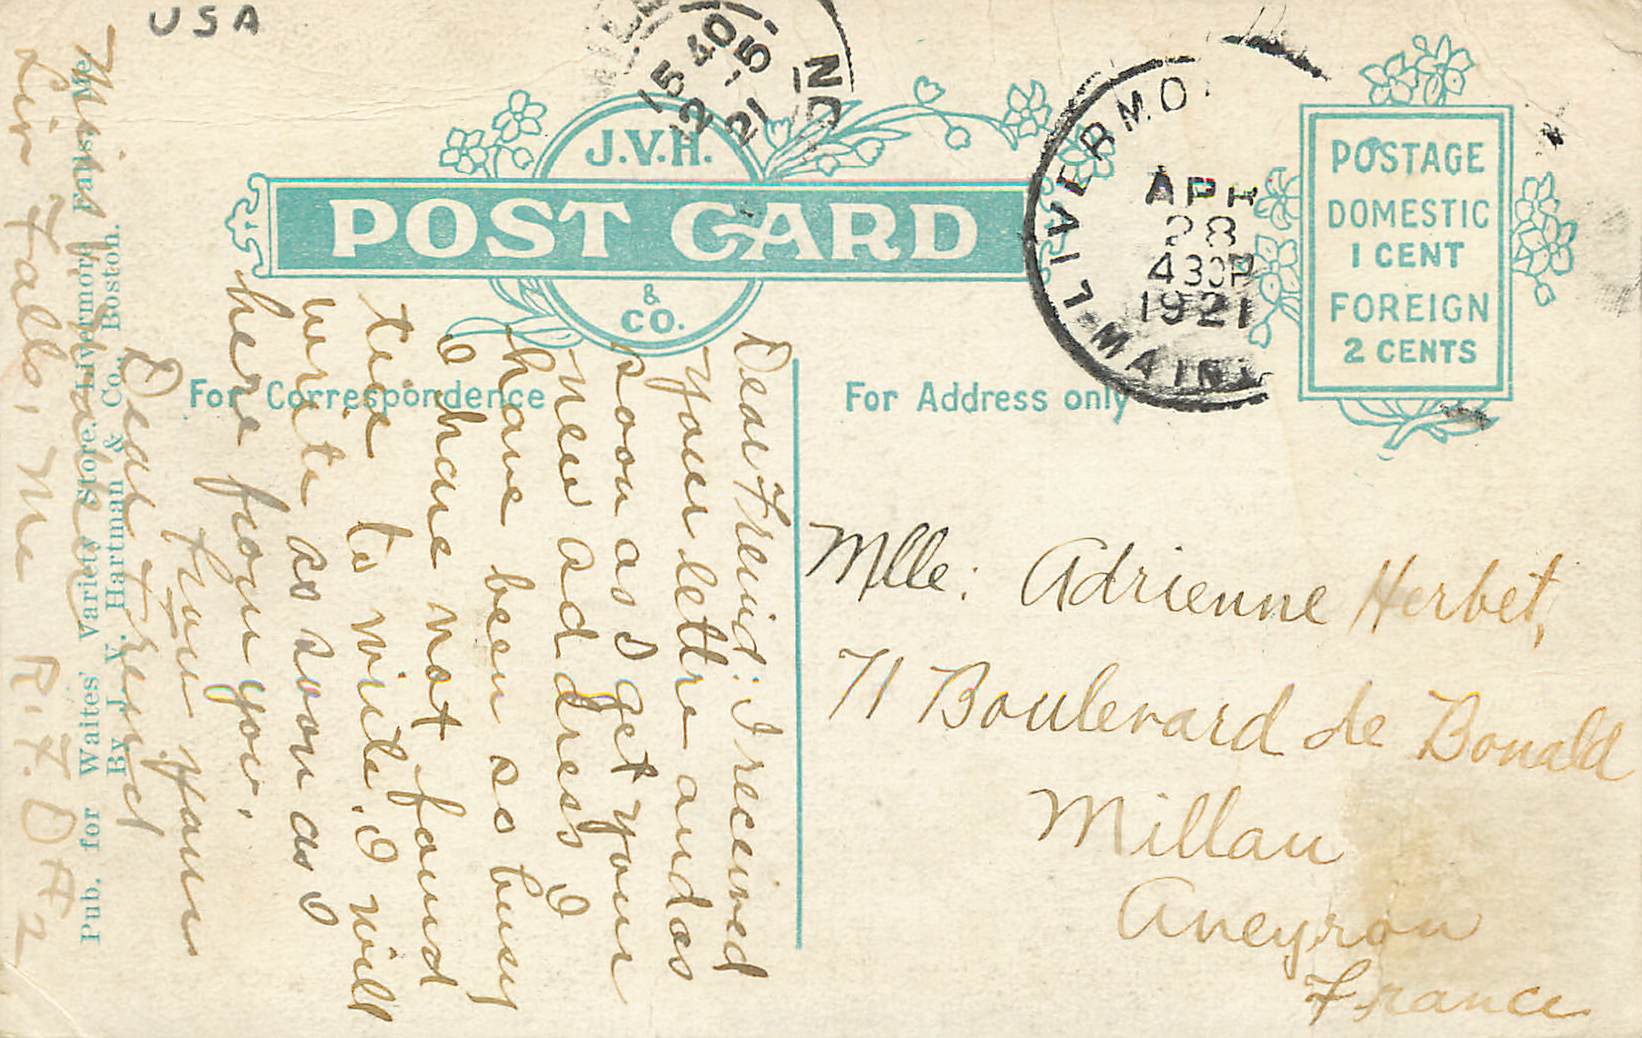 USA
15 40
12 -5.
21
J.V.H.
POST CARD
&
CO.
LIVERMO
APR
28
430P
1921
MAINE
POSTAGE
DOMESTIC
1 CENT
FOREIGN
2 CENTS
For Correspondence
For Address only
Dear Freind: I received
your lettre and as
soon as I get your
new address I
have been so busy
I have not found
time to write. I will
write as soon as I
here from you.
from yours
Dear Freind
Liv Falls, Me R.F.D #2
Pub. for Waites' Variety Store. Livermore Falls, Me.
By J. V. Hartman & Co., Boston.
Mlle: Adrienne Herbet,
71 Boulevard de Bonald
Millau
Aveyron
France